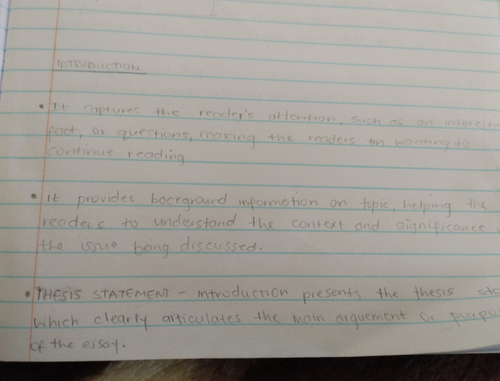 INTRODUCTION
• It captures the reader's attention, such as an
fact, or questions, making the readers on wanting to
continue reading
• It provides background information on topic, helping the
readers to understand the context and significance
the issue being discussed.
• THESIS STATEMENT - introduction presents the thesis
which clearly articulates the main arguement or
of the essay.